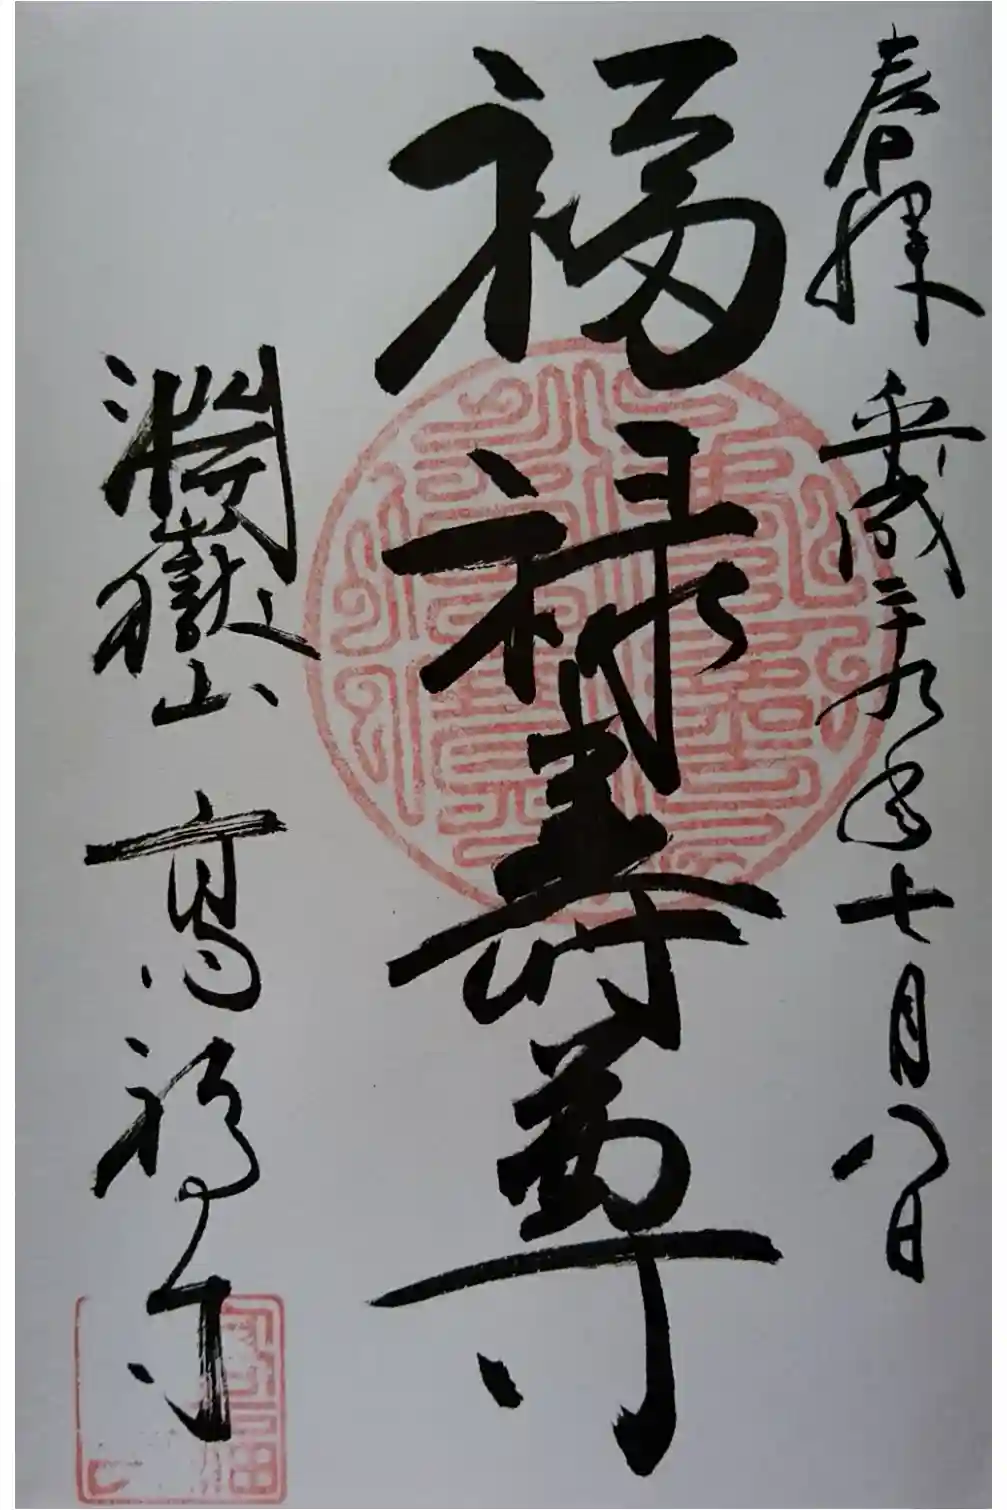 奉拝 平成二十九年七月八日
福禄寿尊
淵嶽山 高福寺